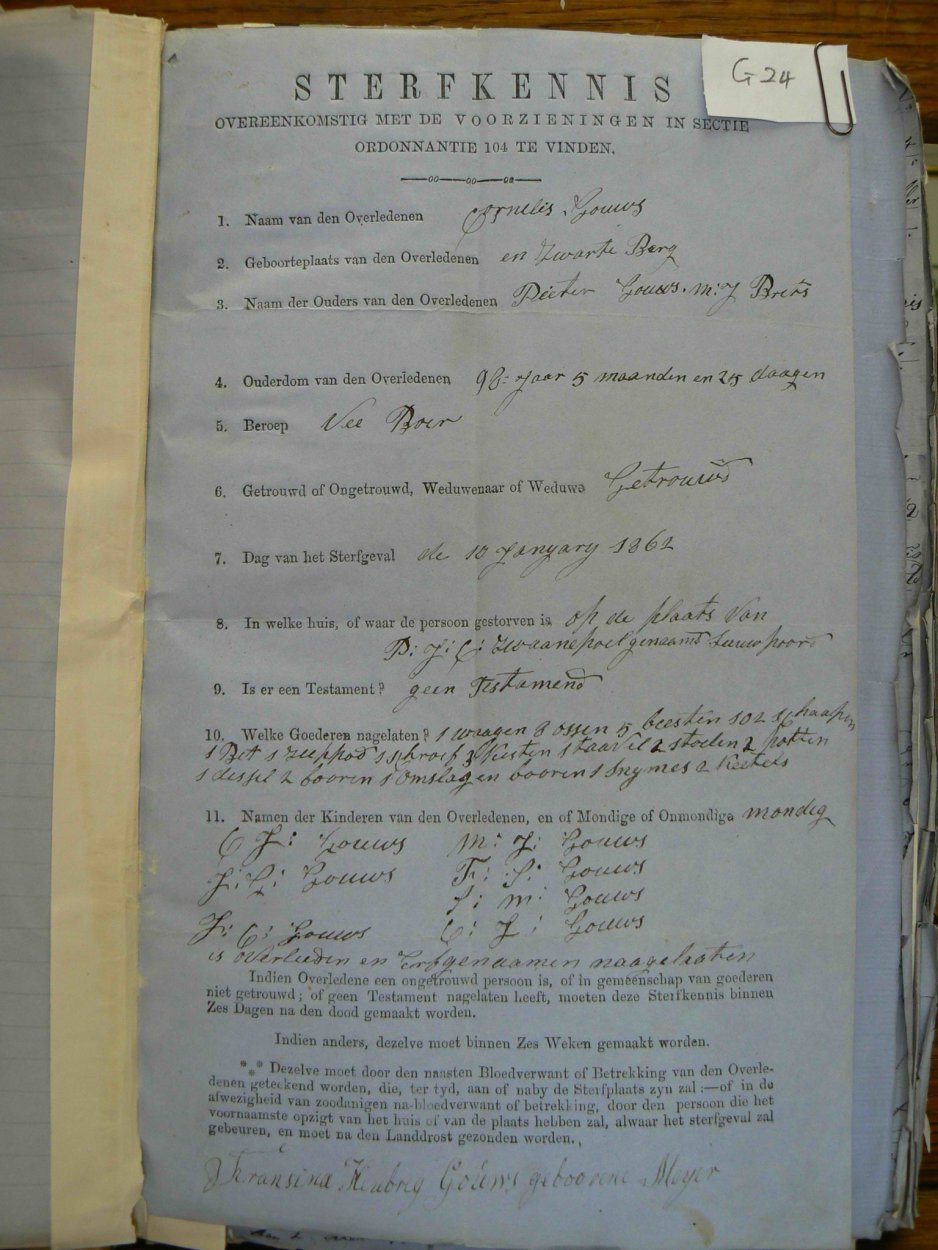 G 24
STERFKENNIS
OVEREENKOMSTIG MET DE VOORZIENINGEN IN SECTIE
ORDONNANTIE 104 TE VINDEN.
1. Naam van den Overledenen Cornelis Gouws
2. Geboorteplaats van den Overledenen en Zwarte Berg
3. Naam der Ouders van den Overledenen Pieter Gouws. M: J Brits
4. Ouderdom van den Overledenen 98: Jaar 5 maanden en 25 daagen
5. Beroep Vee Boer
6. Getrouwd of Ongetrouwd, Weduwenaar of Weduwe Getrouwd
7. Dag van het Sterfgeval de 10 January 1862
8. In welke huis, of waar de persoon gestorven is op de plaats van
P: J: C: Zwaanepoel genaamd Leeuwpoord
9. Is er een Testament? geen Testamend
10. Welke Goederen nagelaten? 1 waagen 8 ossen 5 beesten 102 schaapen
1 Bet 1 zeeppod 1 schroef 3 kesten 1 taavel 2 stoelen 2 potten
1 dessil 2 booren 1 omslag en booren 1 snymes 2 keetels
11. Namen der Kinderen van den Overledenen, en of Mondige of Onmondige mondig
C J: Gouws M: J: Gouws
Gouws F: S: Gouws
M: Gouws
C: Gouws C: J: Gouws
is overleeden en Erfgenaamen naagelaaten
Indien Overledene een ongetrouwd persoon is, of in gemeenschap van goederen
niet getrouwd; of geen Testament nagelaten heeft, moeten deze Sterfkennis binnen
Zes Dagen na den dood gemaakt worden.
Indien anders, dezelve moet binnen Zes Weken gemaakt worden.
*** Dezelve moet door den naasten Bloedverwant of Betrekking van den Overle-
denen geteekend worden, die, ter tyd, aan of naby de Sterfplaats zyn zal:—of in de
afwezigheid van zoodanigen na-bloedverwant of betrekking, door den persoon die het
voornaamste opzigt van het huis of van de plaats hebben zal, alwaar het sterfgeval zal
gebeuren, en moet na den Landdrost gezonden worden.
Fransina Gouws geboorene Meyer